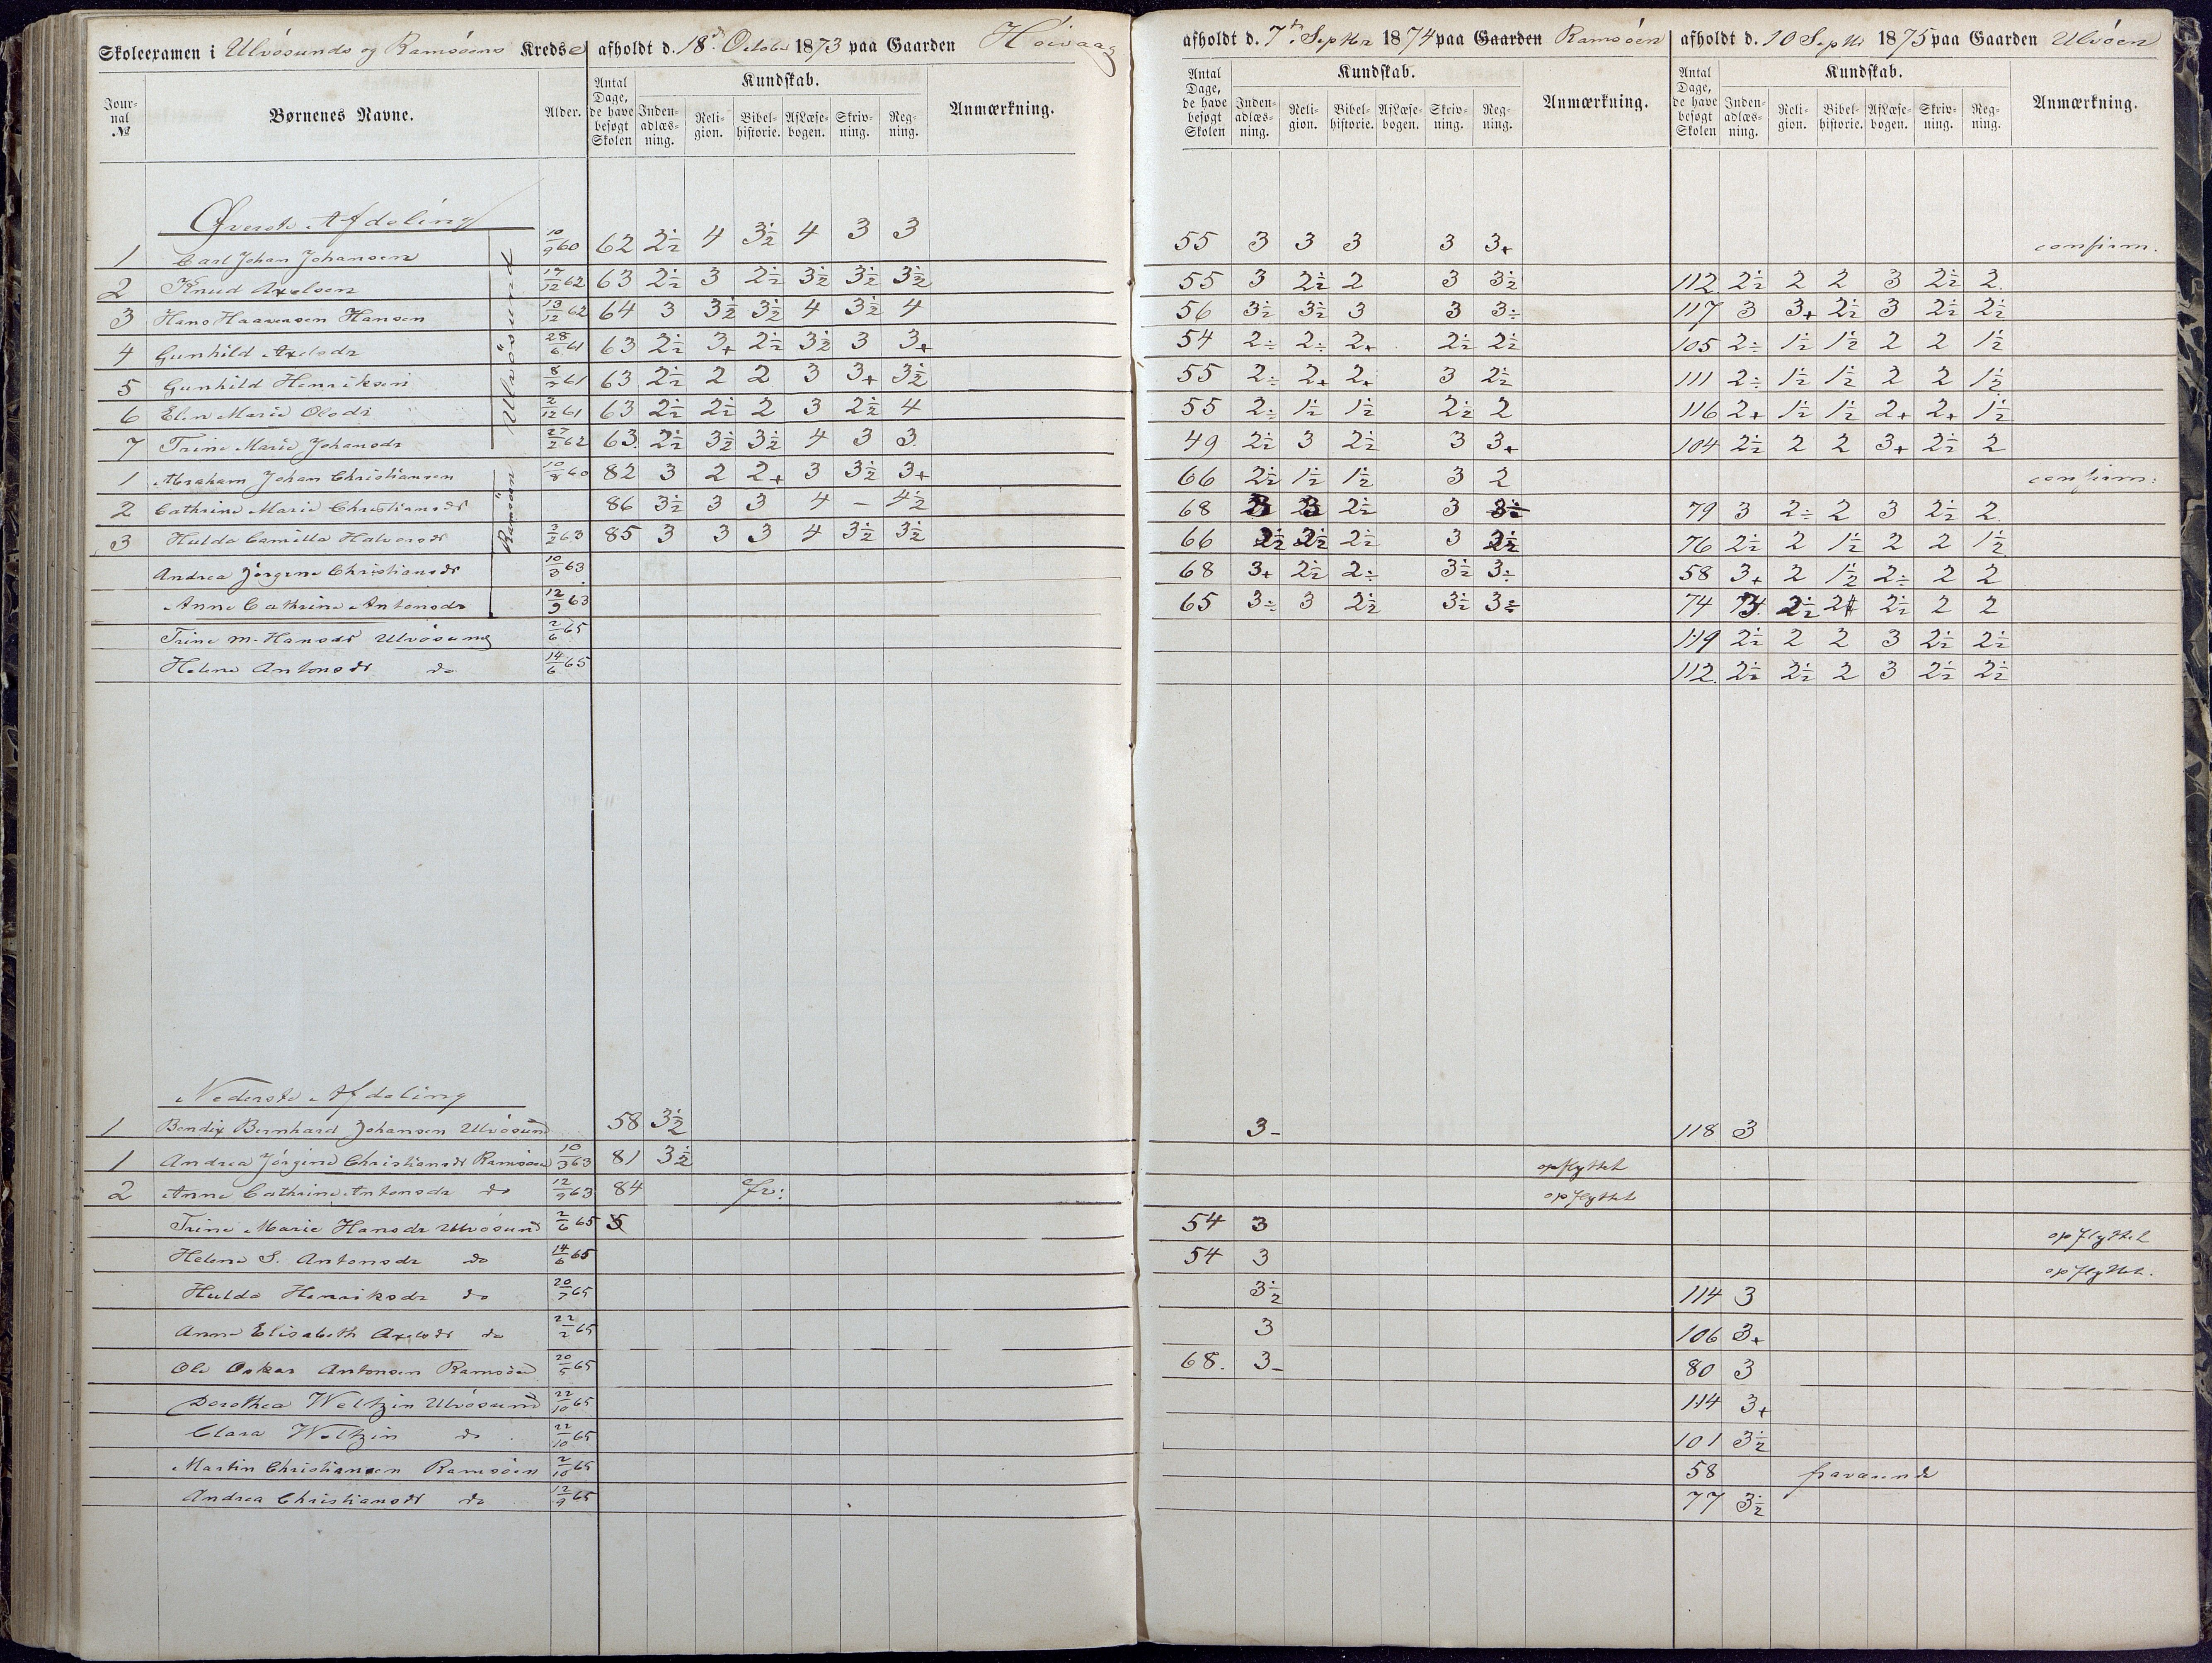 Skoleexamen i Ulvøsunds og Ramsøens Kredse afholdt d. 18de Octobr 1873 paa Gaarden Høivaag afholdt d. 7de Septbr 1874 paa Gaarden Ramsøen afholdt d. 10 Septbr 1875 paa Gaarden Ulvøen
Journal № Børnenes Navne. Alder. Antal Dage, de have besøgt Skolen Kundskab. Indenadlæsning. Religion. Bibelhistorie. AfLæsebogen. Skrivning. Regning. Anmærkning. Antal Dage, de have besøgt Skolen Kundskab. Indenadlæsning. Religion. Bibelhistorie. AfLæsebogen. Skrivning. Regning. Anmærkning. Antal Dage, de have besøgt Skolen Kundskab. Indenadlæsning. Religion. Bibelhistorie. AfLæsebogen. Skrivning. Regning. Anmærkning.
Øverste Afdeling
Ulvøsund
1 Carl Johan Johansen 10/9 60 62 2½ 4 3½ 4 3 3 55 3 3 3 3 3+ confirm.
2 Knud Axelsen 17/12 62 63 2½ 3 2½ 3½ 3½ 3½ 55 3 2½ 2 3 3½ 112 2½ 2 2 3 2½ 2
3 Hans Haavorsen Hansen 13/12 62 64 3 3½ 3½ 4 3½ 4 56 3½ 3½ 3 3 3÷ 117 3 3+ 2½ 3 2½ 2½
4 Gunhild Axelsdr 28/6 61 63 2½ 3+ 2½ 3½ 3 3+ 54 2÷ 2÷ 2+ 2½ 2½ 105 2÷ 1½ 1½ 2 2 1½
5 Gunhild Henriksen 61 63 2½ 2 2 3 3+ 3½ 55 2÷ 2+ 2+ 3 2½ 111 2÷ 1½ 1½ 2 2 1½
6 Elen Marie Olsdr 2/12 61 63 2½ 2½ 2 3 2½ 4 55 2÷ 1½ 1½ 2½ 2 116 2+ 1½ 1½ 2+ 2+ 1½
7 Trine Marie Johansdr 27/2 62 63 2½ 3½ 3½ 4 3 3 49 2½ 3 2½ 3 3+ 104 2½ 2 2 3+ 2½ 2
Ramsøen
1 Abraham Johan Christiansen 10/8 60 82 3 2 2+ 3 3½ 3+ 66 2½ 1½ 1½ 3 2 confirm:
2 Cathrine Marie Christiansdr 86 3½ 3 3 4 – 4½ 68 2½ 3 79 3 2÷ 2 3 2½ 2
3 Hulda Camilla Halvorsdr 2/2 63 85 3 3 3 4 3½ 3½ 66 2½ 2½ 2½ 3 2½ 76 2½ 2 1½ 2 2 1½
Andrea Jörgine Christiansdr 10/3 63 68 3+ 2½ 2÷ 3½ 3÷ 58 3+ 2 1½ 2÷ 2 2
Anne Cathrine Antonsdr 12/9 63 65 3÷ 3 2½ 3½ 3÷ 74 2½ 2½ 2 2
Trine M. Hansdr Ulvøsund 2/6 65 119 2½ 2 2 3 2½ 2½
Helene Antonsdr do 14/6 65 112 2½ 2½ 2 3 2½ 2½
Nederste Afdeling
1 Bendix Bernhard Johansen Ulvøsund 58 3½ 3- 118 3
1 Andrea Jörgine Christiansdr Ramsøen 10/3 63 81 3½ opflyttet
2 Anne Cathrine Antonsdr do 12/9 63 84 fr: opflyttet
Trine Marie Hansdr Ulvøsund 2/6 65 54 3 opflyttet
Helene S. Antonsdr do 14/6 65 54 3 opflyttet.
Hulda Henriksdr do 20/7 65 3½ 114 3
Anne Elisabeth Axelsdr do 22/2 65 3 106 3+
Ole Oskar Antonsen Ramsøen 20/5 65 68. 3- 80 3
Dorothea Weltzin Ulvøsund 22/10 65 114 3+
Clara Weltzin do 22/10 65 101 3½
Martin Christiansen Ramsøen 2/10 65 58 fraværende
Andrea Christiansdr do 12/9 65 77 3½